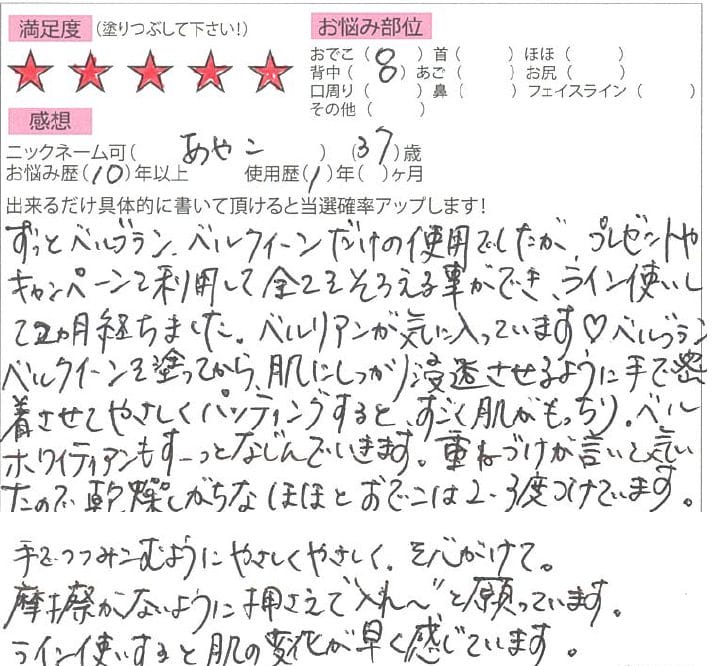 満足度 (塗りつぶして下さい!)
お悩み部位
おでこ( 8 ) 首( ) ほほ( )
背中( 8 ) あご( ) お尻( )
口周り( ) 鼻( ) フェイスライン( )
その他( )
感想
ニックネーム可( あやこ ) (37)歳
お悩み歴(10)年以上 使用歴(1)年( )ヶ月
出来るだけ具体的に書いて頂けると当選確率アップします!
ずっとベルブラン、ベルクィーンだけの使用でしたが、プレゼントや
キャンペーンで利用して全てをそろえる事ができ、ライン使いし
て2ヵ月経ちました。ベルリアンが気に入っています♡ベルブラン
ベルクイーンを塗ってから、肌にしっかり浸透させるように手で密
着させてやさしくパッティングすると、すごく肌がもっちり。ベル
ホワイティアンもすーっとなじんでいきます。重ねづけが言いと気い
たので、乾燥しがちなほほとおでこは2~3度つけています。
手でつつみこむようにやさしくやさしく、を心がけて。
摩擦がないように押さえて"入れ~"と願っています。
ライン使いすると肌の変化が早く感じています。